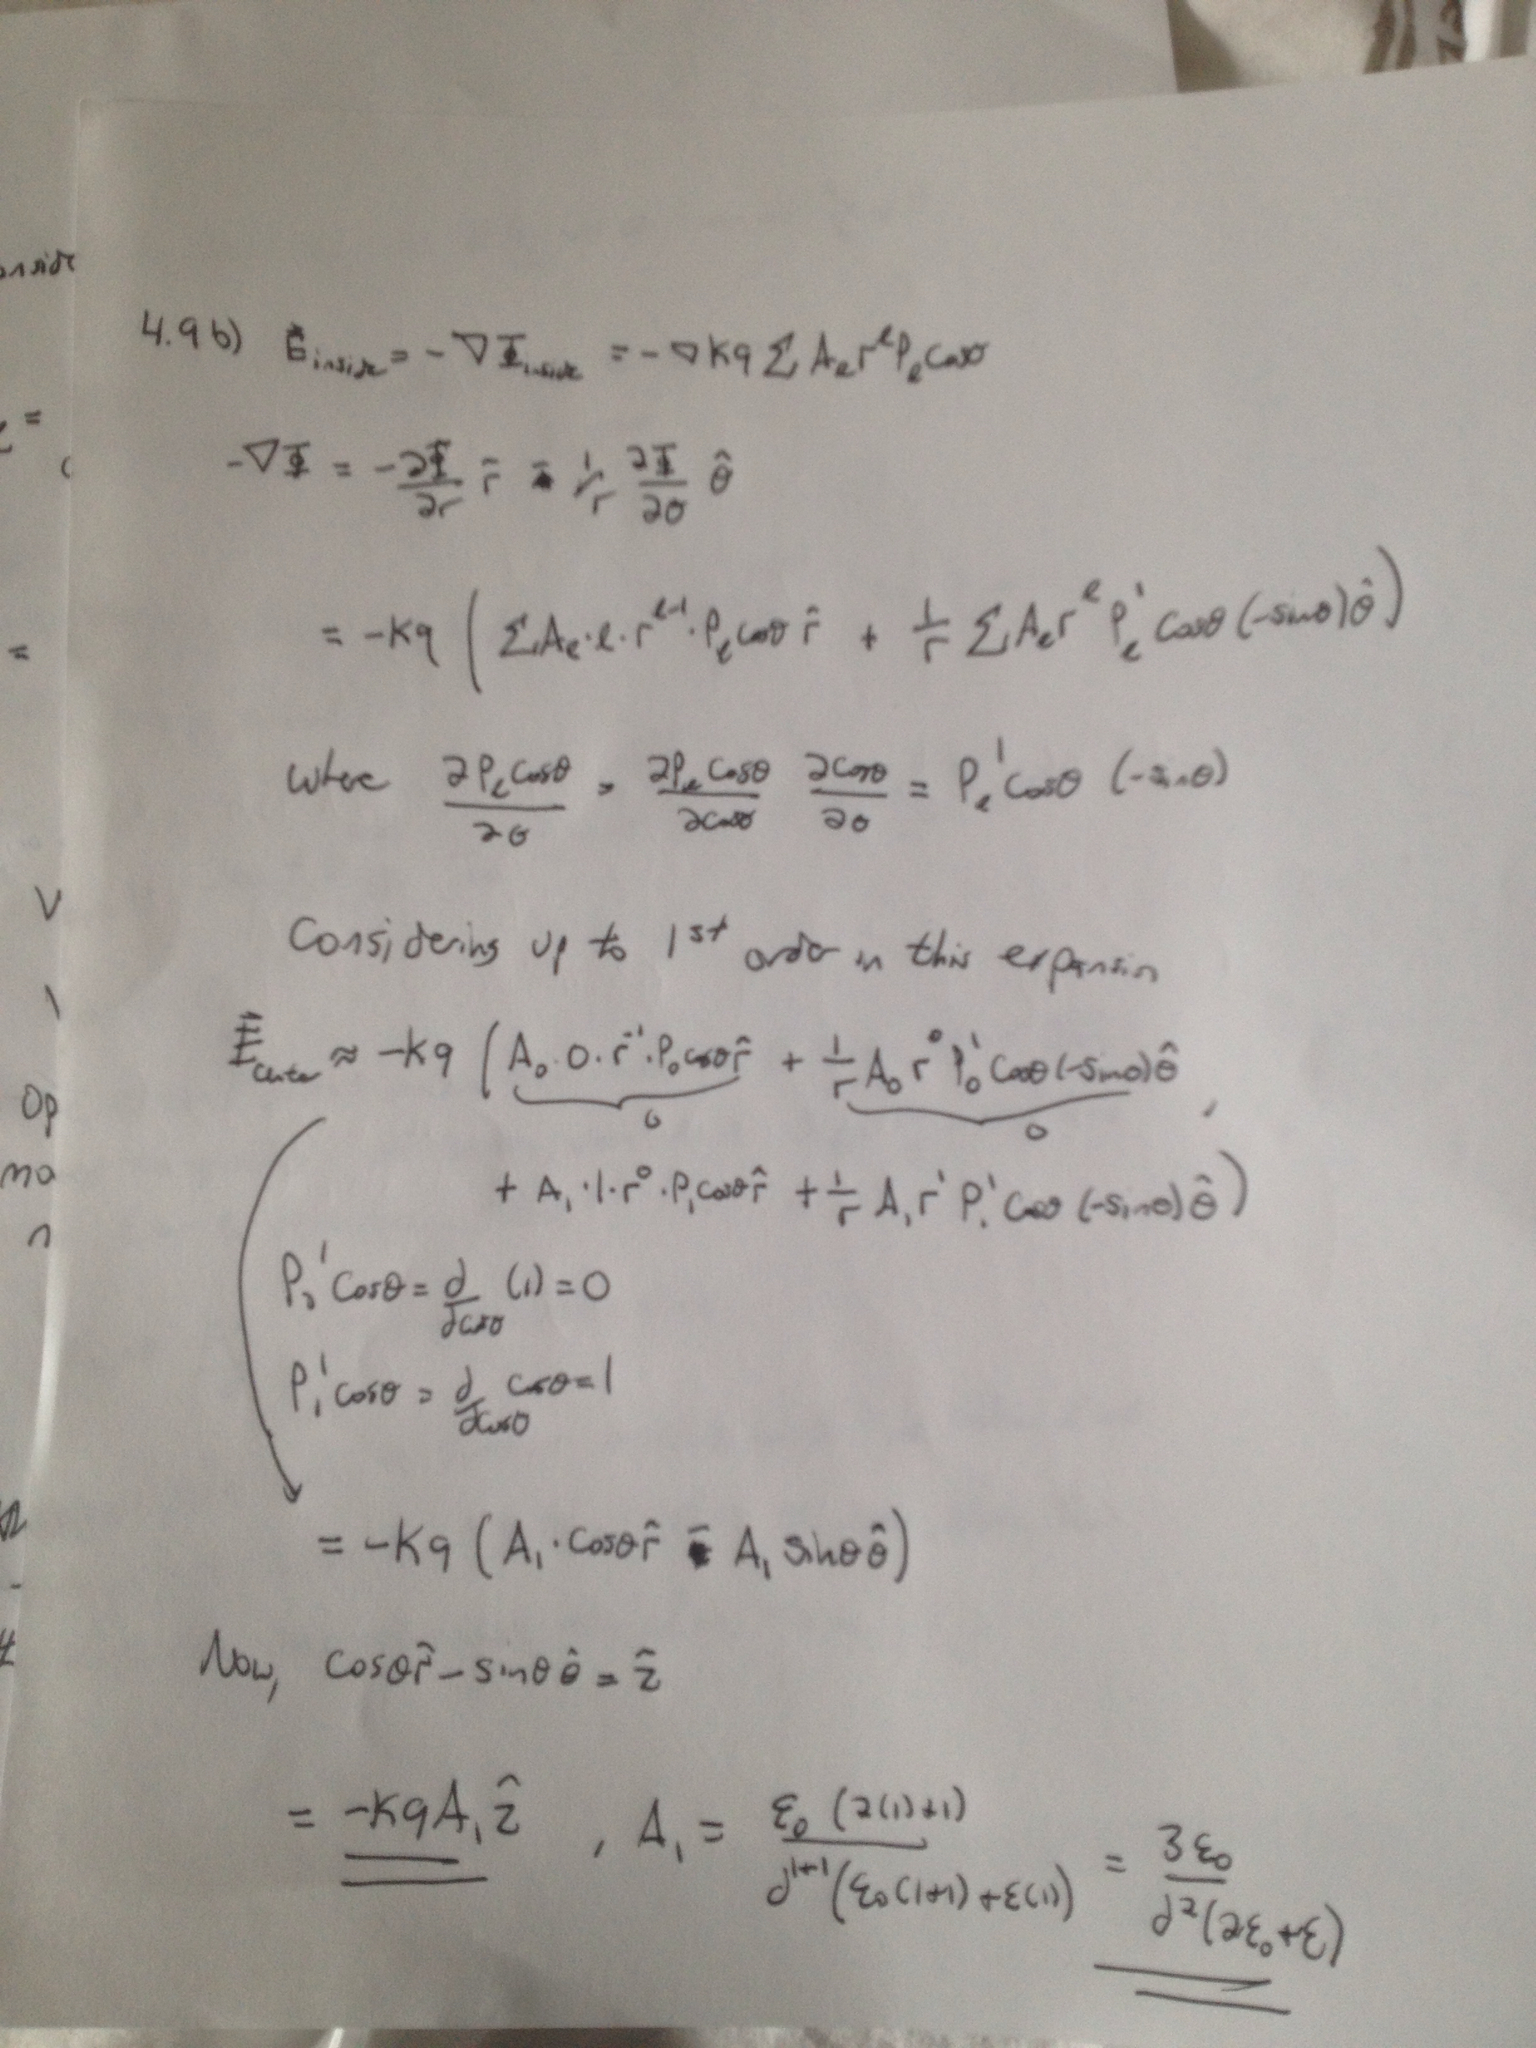 onside
4.9 b) E⃗inside = - ∇Φinside = - ∇ Kq Σ Aₗ rˡ Pₗ cosθ
=
-∇Φ = -∂Φ/∂r r̂ - 1/r ∂Φ/∂θ θ̂
= -Kq ( Σ Aₗ·l·rˡ⁻¹·Pₗ cosθ r̂ + 1/r Σ Aₗ rˡ Pₗ' cosθ (-sinθ) θ̂ )
=
where ∂Pₗ cosθ/∂θ = ∂Pₗ cosθ/∂cosθ ∂cosθ/∂θ = Pₗ' cosθ (-sinθ)
V
Considering up to 1st order in this expansion
E⃗center ≈ -Kq ( A₀·0·r⁻¹·P₀ cosθ r̂ + 1/r A₀ r⁰ P₀' cosθ (-sinθ) θ̂
Op
0 0
ma
+ A₁·1·r⁰·P₁ cosθ r̂ + 1/r A₁ r¹ P₁' cosθ (-sinθ) θ̂ )
n
P₀' cosθ = d/dcosθ (1) = 0
P₁' cosθ = d/dcosθ cosθ = 1
= -Kq ( A₁·cosθ r̂ - A₁ sinθ θ̂ )
Now, cosθ r̂ - sinθ θ̂ = ẑ
= -KqA₁ ẑ , A₁ = ε₀ (2(1)+1)/d¹⁺¹(ε₀(1+1)+ε(1)) = 3ε₀/d²(2ε₀+ε)